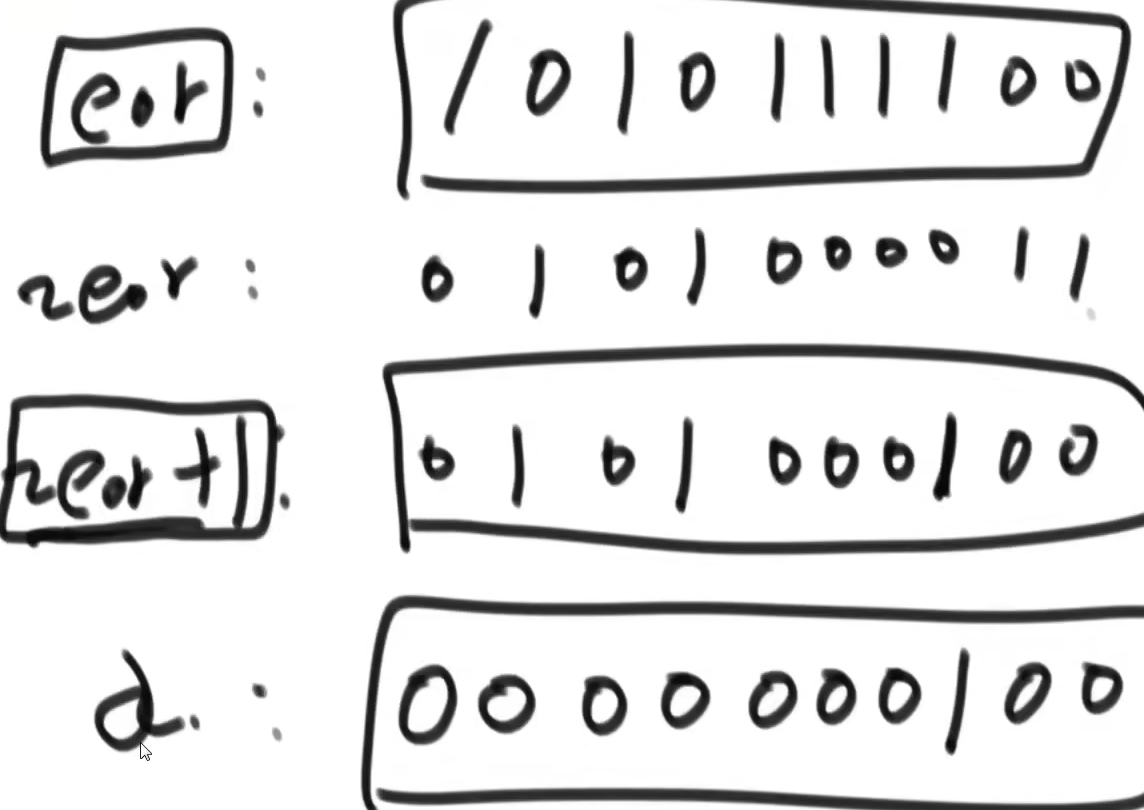 eor : 1 0 1 0 1 1 1 1 0 0
~eor : 0 1 0 1 0 0 0 0 1 1
~eor + 1 : 0 1 0 1 0 0 0 1 0 0
a : 0 0 0 0 0 0 0 1 0 0